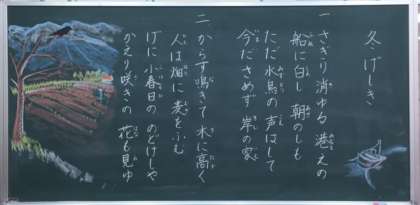 冬げしき
一 さぎり消ゆる 港えの
船に白し 朝のしも
ただ水鳥の声はして
今ださめず 岸の家
二 からす鳴きて 木に高く
人は畑に 麦をふむ
げに小春日の のどけしや
かえり咲きの 花も見ゆ